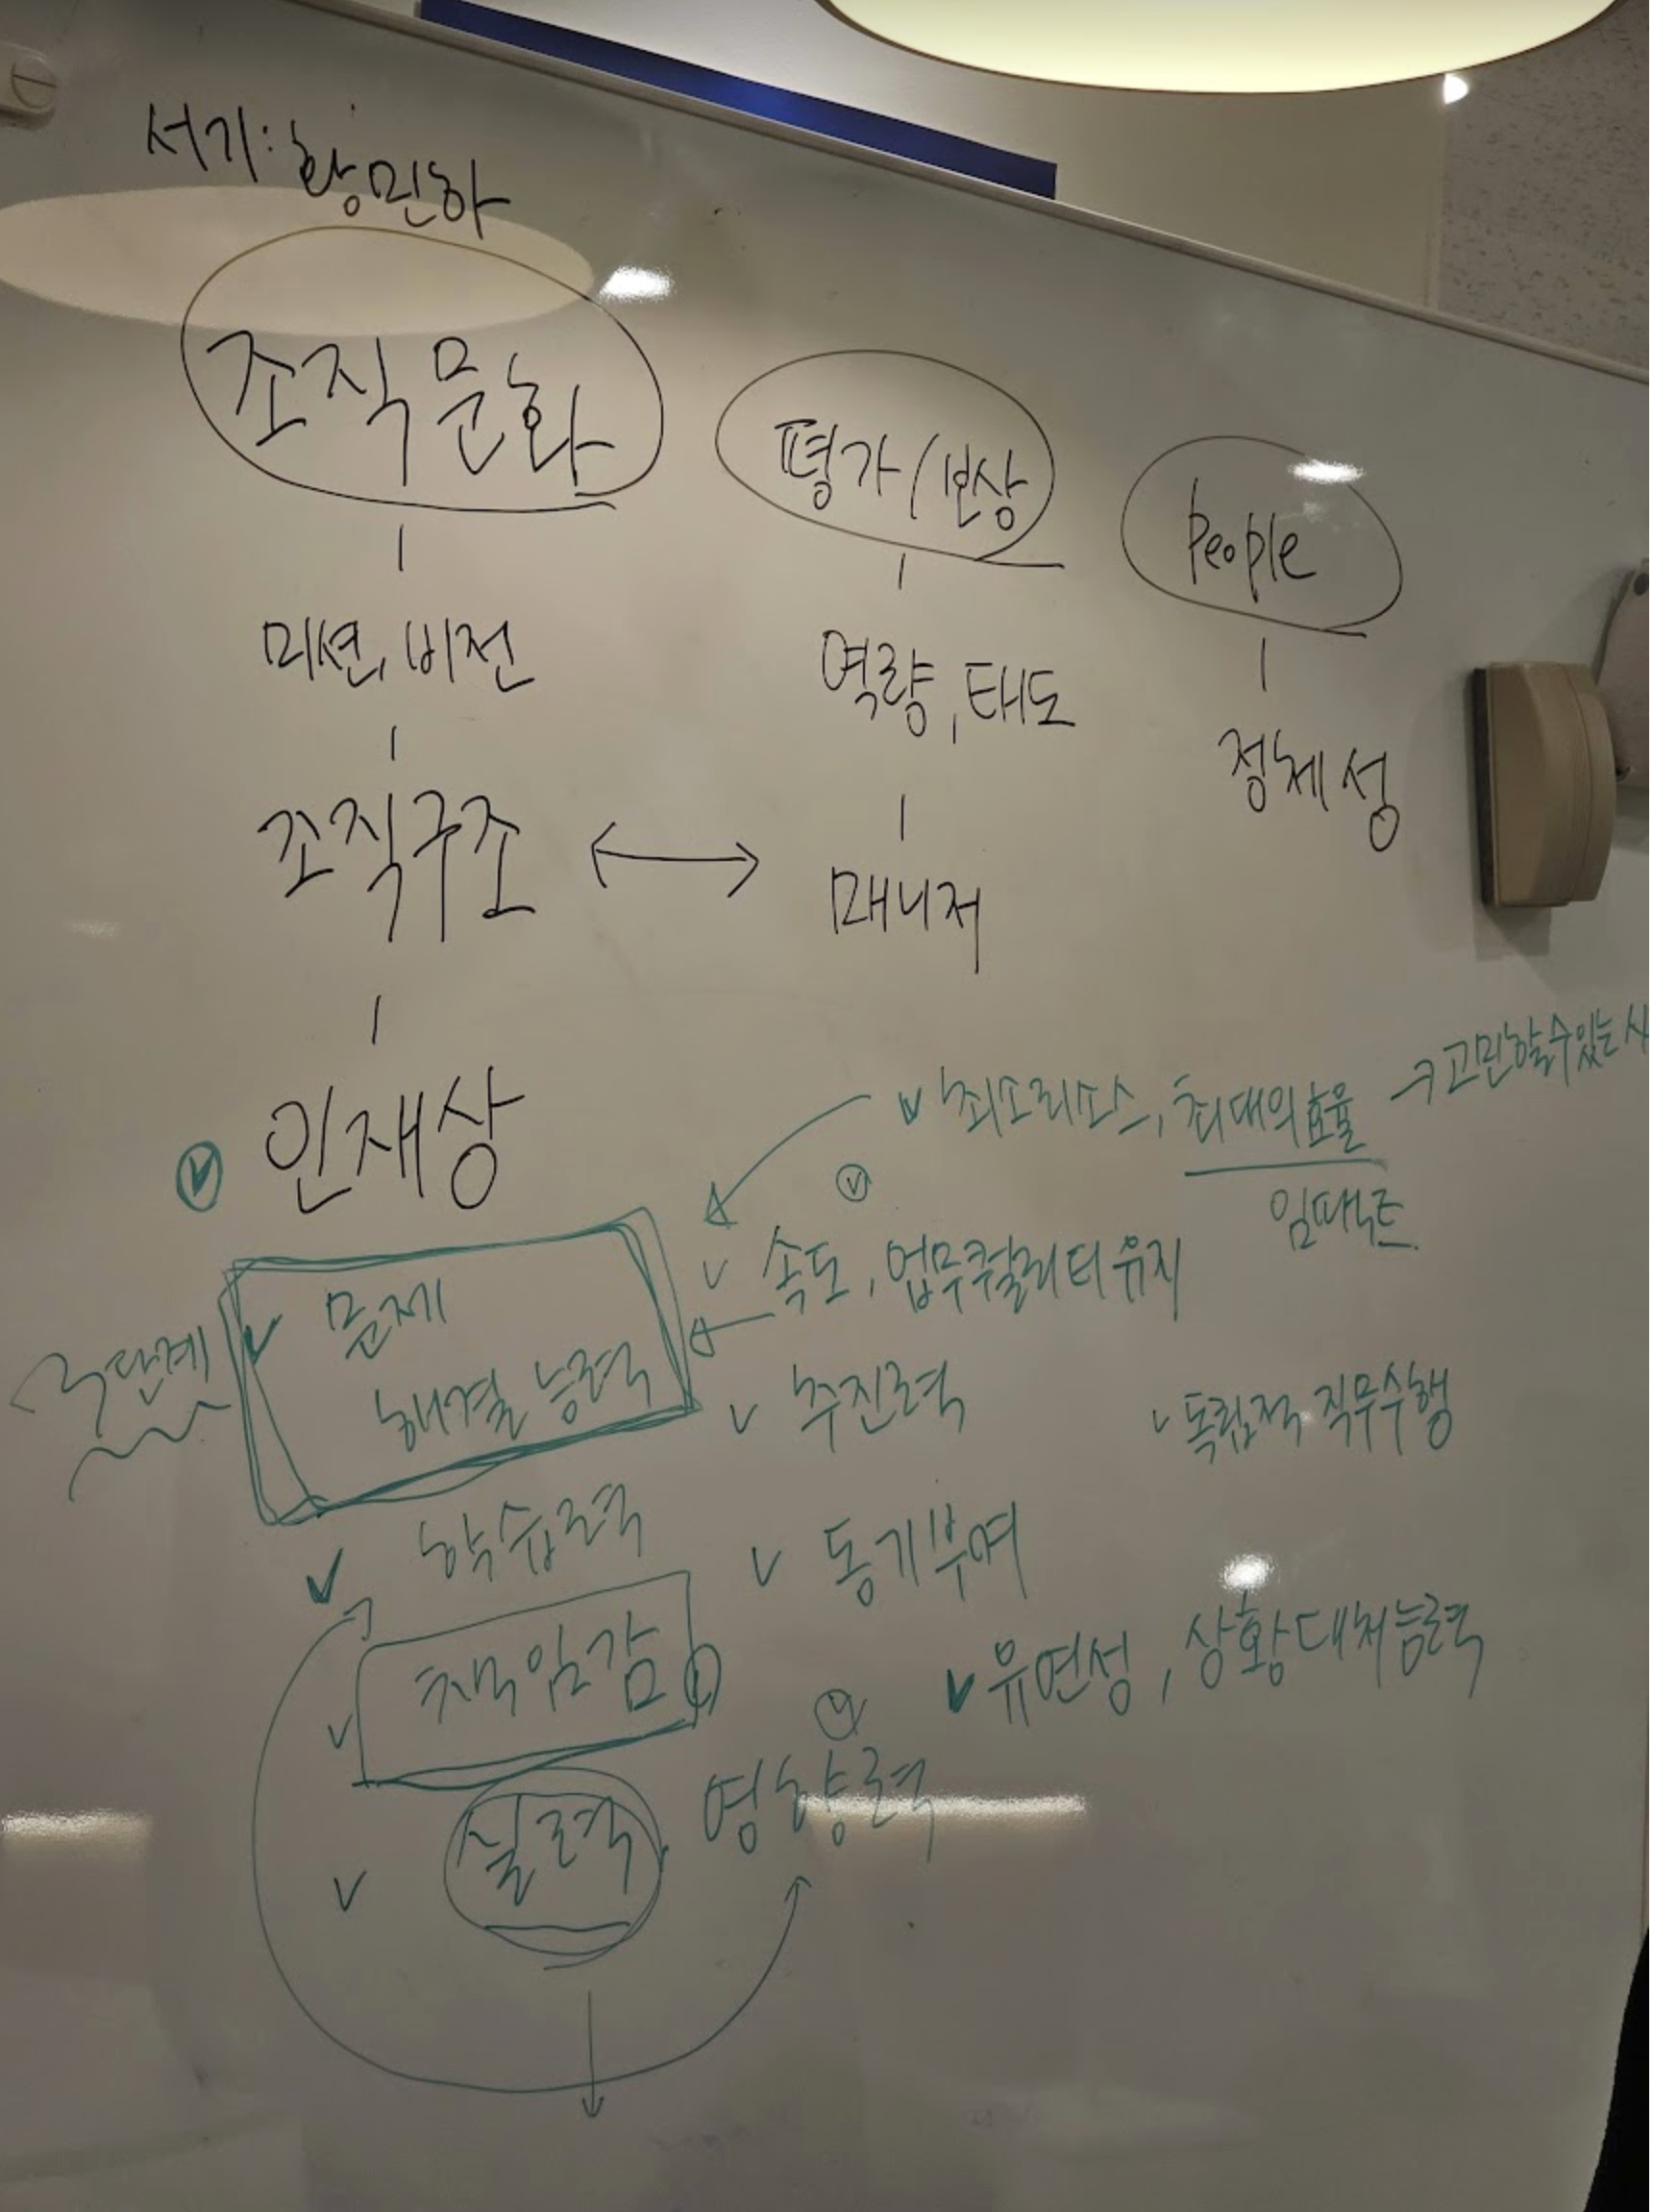 서기: 황민하
조직문화
평가/보상
People
미션, 비전
역량, 태도
정체성
조직구조
매니저
인재상
최소리소스, 최대의효율 → 고민할수있는 사
임팩트
속도, 업무퀄리티유지
3단계
문제
해결 능력
추진력
독립적 직무수행
학습력
동기부여
책임감
유연성, 상황대처능력
실력, 영향력